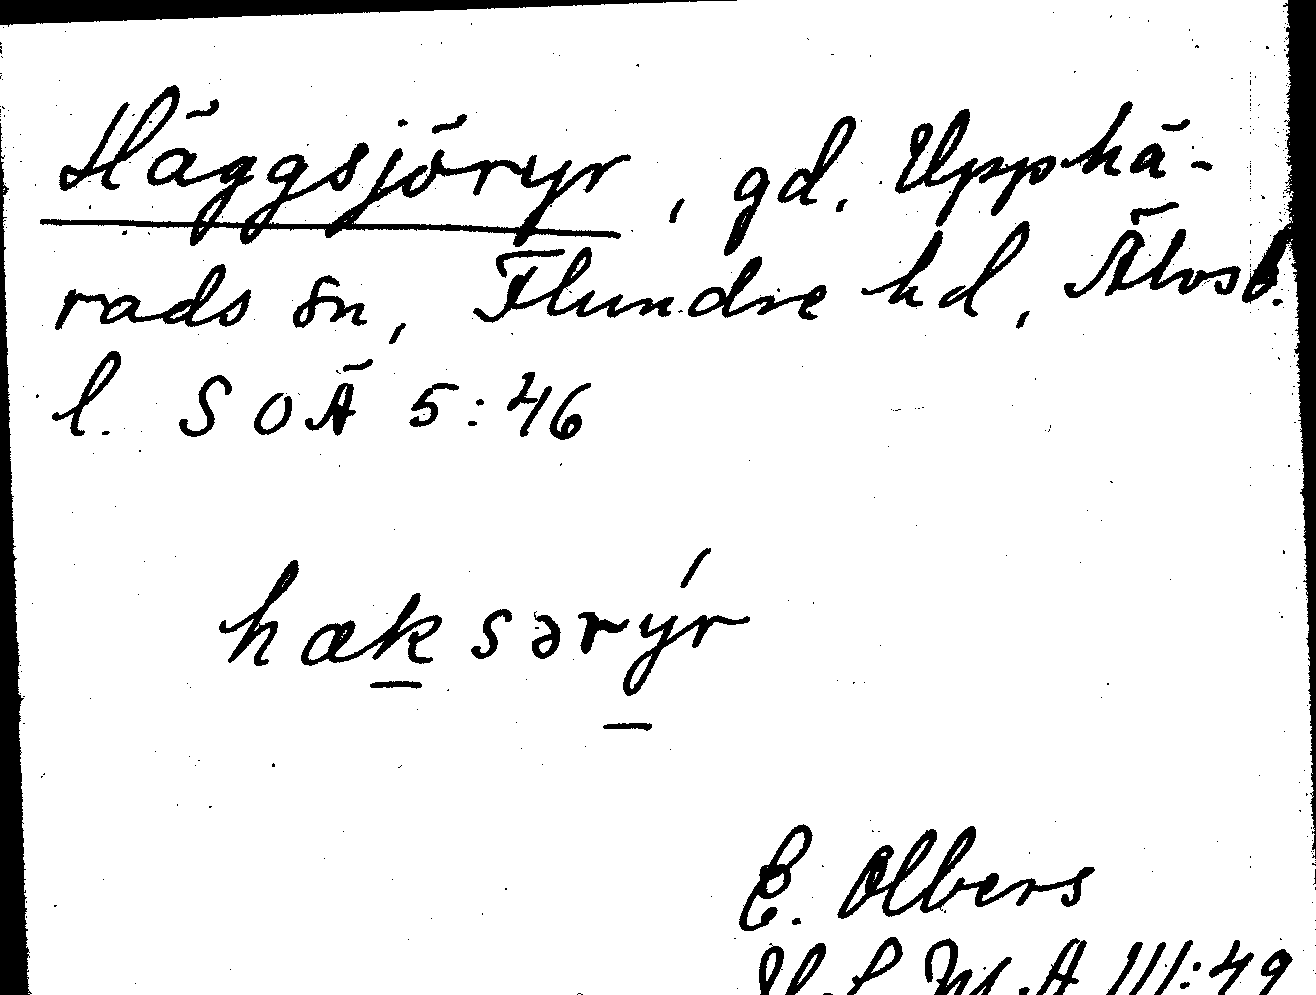 Häggsjöryr, gd. Upphä-
rads sn, Flundre hd, Älvsb.
l. SOÄ 5:46
hæksərýr
E. Olbers
V.F.M.A III:49